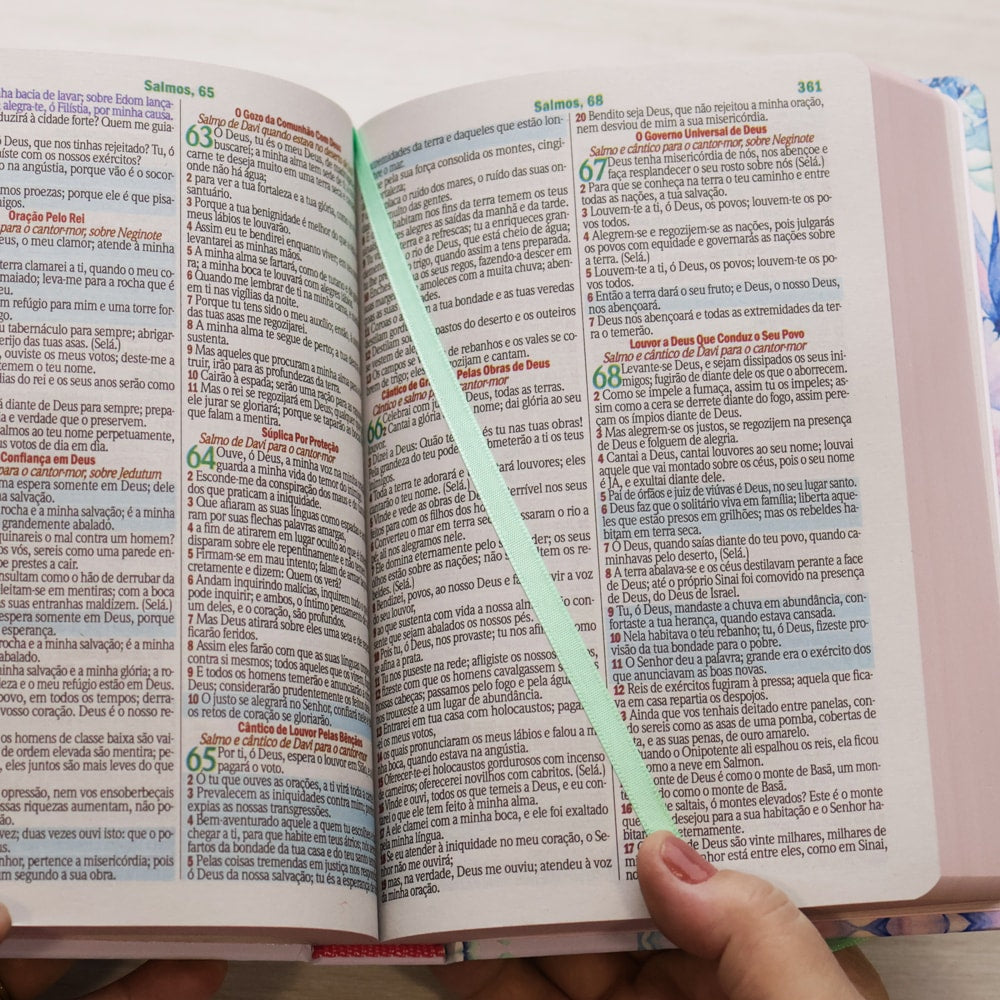 Salmos, 65
nha bacia de lavar; sobre Edom lança-
alegra-te, ó Filístia, por minha causa.
duzirá à cidade forte? Quem me guia-
Deus, que nos tinhas rejeitado? Tu, ó
íste com os nossos exércitos?
o na angústia, porque vão é o socor-
mos proezas; porque ele é que pisa-
migos.
Oração Pelo Rei
para o cantor-mor, sobre Neginote
eus, o meu clamor; atende à minha
terra clamarei a ti, quando o meu co-
maiado; leva-me para a rocha que é
eu.
m refúgio para mim e uma torre for-
go.
u tabernáculo para sempre; abrigar-
erijo das tuas asas. (Selá.)
, ouviste os meus votos; deste-me a
temem o teu nome.
dias do rei e os seus anos serão como
á diante de Deus para sempre; prepa-
a e verdade que o preservem.
almos ao teu nome perpetuamente,
us votos de dia em dia.
Confiança em Deus
para o cantor-mor, sobre Jedutum
ma espera somente em Deus; dele
a salvação.
rocha e a minha salvação; é a minha
grandemente abalado.
quinareis o mal contra um homem?
os vós, sereis como uma parede en-
be prestes a cair.
nsultam como o hão de derrubar da
leitam-se em mentiras; com a boca
s suas entranhas maldizem. (Selá.)
espera somente em Deus, porque
esperança.
rocha e a minha salvação; é a minha
abalado.
inha salvação e a minha glória; a ro-
leza e o meu refúgio estão em Deus.
povo, em todos os tempos; derra-
vosso coração. Deus é o nosso re-
os homens de classe baixa são vai-
de ordem elevada são mentira; pe-
, eles juntos são mais leves do que
opressão, nem vos ensoberbeçais
ssas riquezas aumentam, não po-
ão.
vez; duas vezes ouvi isto: que o po-
us.
nhor, pertence a misericórdia; pois
m segundo a sua obra.
O Gozo da Comunhão Com Deus
Salmo de Davi quando estava no deserto
63 Ó Deus, tu és o meu Deus, de
buscarei; a minha alma tem sede
carne te deseja muito em uma terra
onde não há água;
2 para ver a tua fortaleza e a tua glória,
santuário.
3 Porque a tua benignidade é melhor do que
meus lábios te louvarão.
4 Assim eu te bendirei enquanto viver; em
levantarei as minhas mãos.
5 A minha alma se fartará, como de
ra; a minha boca te louvará com alegres
6 Quando me lembrar de ti na minha cama,
em ti nas vigílias da noite.
7 Porque tu tens sido o meu auxílio;
das tuas asas me regozijarei.
8 A minha alma te segue de perto; a tua
sustenta.
9 Mas aqueles que procuram a minha alma
truir, irão para as profundezas da terra.
10 Cairão à espada; serão uma ração
11 Mas o rei se regozijará em Deus;
ele jurar se gloriará; porque se taparão
que falam a mentira.
Súplica Por Proteção
Salmo de Davi para o cantor-mor
64 Ouve, ó Deus, a minha voz na minha
guarda a minha vida do temor do
2 Esconde-me da conspiração dos maus e do
dos que praticam a iniquidade.
3 Que afiaram as suas línguas como espadas
ram por suas flechas palavras amargas,
4 a fim de atirarem em lugar oculto ao que é
disparam sobre ele repentinamente e não
5 Firmam-se em mau intento; falam de armar
cretamente e dizem: Quem os verá?
6 Andam inquirindo malícias, inquirem tudo
pode inquirir; e ambos, o íntimo pensamento
um deles, e o coração, são profundos.
7 Mas Deus atirará sobre eles uma seta e de
ficarão feridos.
8 Assim eles farão com que as suas línguas
contra si mesmos; todos aqueles que os virem
9 E todos os homens temerão e anunciarão a
Deus; considerarão prudentemente os feitos
10 O justo se alegrará no Senhor, confiará nele
os retos de coração se gloriarão.
Cântico de Louvor Pelas Bênçãos
Salmo e cântico de Davi para o cantor-mor
65 Por ti, ó Deus, espera o louvor em Sião,
pagará o voto.
2 Ó tu que ouves as orações, a ti virá toda a
3 Prevalecem as iniquidades contra mim;
expias as nossas transgressões.
4 Bem-aventurado aquele a quem tu escolhes
chegar a ti, para que habite em teus átrios;
fartos da bondade da tua casa e do teu santo
5 Pelas coisas tremendas em justiça nos
ó Deus da nossa salvação; tu és a esperança
Salmos, 68
361
tremidades da terra e daqueles que estão lon-
mar;
pela sua força consolida os montes, cingi-
fortaleza;
aplaca o ruído dos mares, o ruído das suas on-
tumulto das gentes.
habitam nos fins da terra temem os teus
alegres as saídas da manhã e da tarde.
terra e a refrescas; tu a enriqueces gran-
o rio de Deus, que está cheio de água;
trigo, quando assim a tens preparada.
os seus regos, fazendo-a descer em
amoleces com a muita chuva; aben-
ades.
da tua bondade e as tuas veredas
pastos do deserto e os outeiros
de rebanhos e os vales se co-
de trigo; eles regozijam e cantam.
Cântico de Pelas Obras de Deus
Cântico e salmo para o cantor-mor
66 Celebrai com Deus, todas as terras.
Cantai a glória nome; dai glória ao seu
louvor.
Dizei a Deus: Quão és tu nas tuas obras!
Pela grandeza do teu pod ometerão a ti os teus
Toda a terra te adorará e ará louvores; eles
cantarão o teu nome. (Selá.)
Vinde e vede as obras de D terrível nos seus
feitos para com os filhos dos ho
Converteu o mar em terra sec ssaram o rio a
pé; ali nos alegramos nele.
Ele domina eternamente pelo s der; os seus
olhos estão sobre as nações; não tem os re-
beldes. (Selá.)
Bendizei, povos, ao nosso Deus e fa vir a voz
do seu louvor,
ao que sustenta com vida a nossa alm con-
sente que sejam abalados os nossos pés.
10 Pois tu, ó Deus, nos provaste; tu nos afin omo
se afina a prata.
Tu nos puseste na rede; afligiste os nossos
fizeste com que os homens cavalgassem s
nossas cabeças; passamos pelo fogo e pela água
nos trouxeste a um lugar de abundância.
13 Entrarei em tua casa com holocaustos; paga
ei os meus votos,
14 os quais pronunciaram os meus lábios e falou a m
nha boca, quando estava na angústia.
15 Oferecer-te-ei holocaustos gordurosos com incenso
de carneiros; oferecerei novilhos com cabritos. (Selá.)
Vinde e ouvi, todos os que temeis a Deus, e eu con-
tarei o que ele tem feito à minha alma.
17 A ele clamei com a minha boca, e ele foi exaltado
pela minha língua.
18 Se eu atender à iniquidade no meu coração, o Se-
nhor não me ouvirá;
19 mas, na verdade, Deus me ouviu; atendeu à voz
da minha oração.
20 Bendito seja Deus, que não rejeitou a minha oração,
nem desviou de mim a sua misericórdia.
O Governo Universal de Deus
Salmo e cântico para o cantor-mor, sobre Neginote
67 Deus tenha misericórdia de nós, nos abençoe e
faça resplandecer o seu rosto sobre nós (Selá.)
2 Para que se conheça na terra o teu caminho e entre
todas as nações, a tua salvação.
3 Louvem-te a ti, ó Deus, os povos; louvem-te os po-
vos todos.
4 Alegrem-se e regozijem-se as nações, pois julgarás
os povos com equidade e governarás as nações sobre
a terra. (Selá.)
5 Louvem-te a ti, ó Deus, os povos; louvem-te os po-
vos todos.
6 Então a terra dará o seu fruto; e Deus, o nosso Deus,
nos abençoará.
7 Deus nos abençoará e todas as extremidades da ter-
ra o temerão.
Louvor a Deus Que Conduz o Seu Povo
Salmo e cântico de Davi para o cantor-mor
68 Levante-se Deus, e sejam dissipados os seus ini-
migos; fugirão de diante dele os que o aborrecem.
2 Como se impele a fumaça, assim tu os impeles; as-
sim como a cera se derrete diante do fogo, assim pere-
çam os ímpios diante de Deus.
3 Mas alegrem-se os justos, se regozijem na presença
de Deus e folguem de alegria.
4 Cantai a Deus, cantai louvores ao seu nome; louvai
aquele que vai montado sobre os céus, pois o seu nome
é JÁ, e exultai diante dele.
5 Pai de órfãos e juiz de viúvas é Deus, no seu lugar santo.
6 Deus faz que o solitário viva em família; liberta aque-
les que estão presos em grilhões; mas os rebeldes ha-
bitam em terra seca.
7 Ó Deus, quando saías diante do teu povo, quando ca-
minhavas pelo deserto, (Selá.)
8 A terra abalava-se e os céus destilavam perante a face
de Deus; até o próprio Sinai foi comovido na presença
de Deus, do Deus de Israel.
9 Tu, ó Deus, mandaste a chuva em abundância, con-
fortaste a tua herança, quando estava cansada.
10 Nela habitava o teu rebanho; tu, ó Deus, fizeste pro-
visão da tua bondade para o pobre.
11 O Senhor deu a palavra; grande era o exército dos
que anunciavam as boas novas.
12 Reis de exércitos fugiram à pressa; aquela que fica-
va em casa repartia os despojos.
3 Ainda que vos tenhais deitado entre panelas, con-
do sereis como as asas de uma pomba, cobertas de
ta, e as suas penas, de ouro amarelo.
uando o Onipotente ali espalhou os reis, ela ficou
como a neve em Salmon.
onte de Deus é como o monte de Basã, um mon-
do como o monte de Basã.
16 saltais, ó montes elevados? Este é o monte
desejou para a sua habitação e o Senhor ha-
bitar eternamente.
17 de Deus são vinte milhares, milhares de
nhor está entre eles, como em Sinai,
no